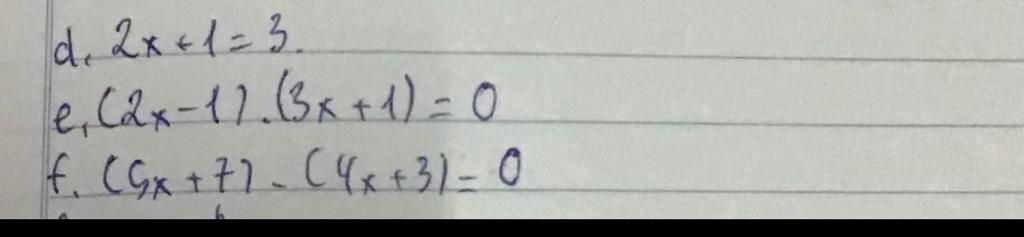 d, 2x+1=3.
e, (2x-1).(3x+1)=0
f. (5x+7)-(4x+3)=0